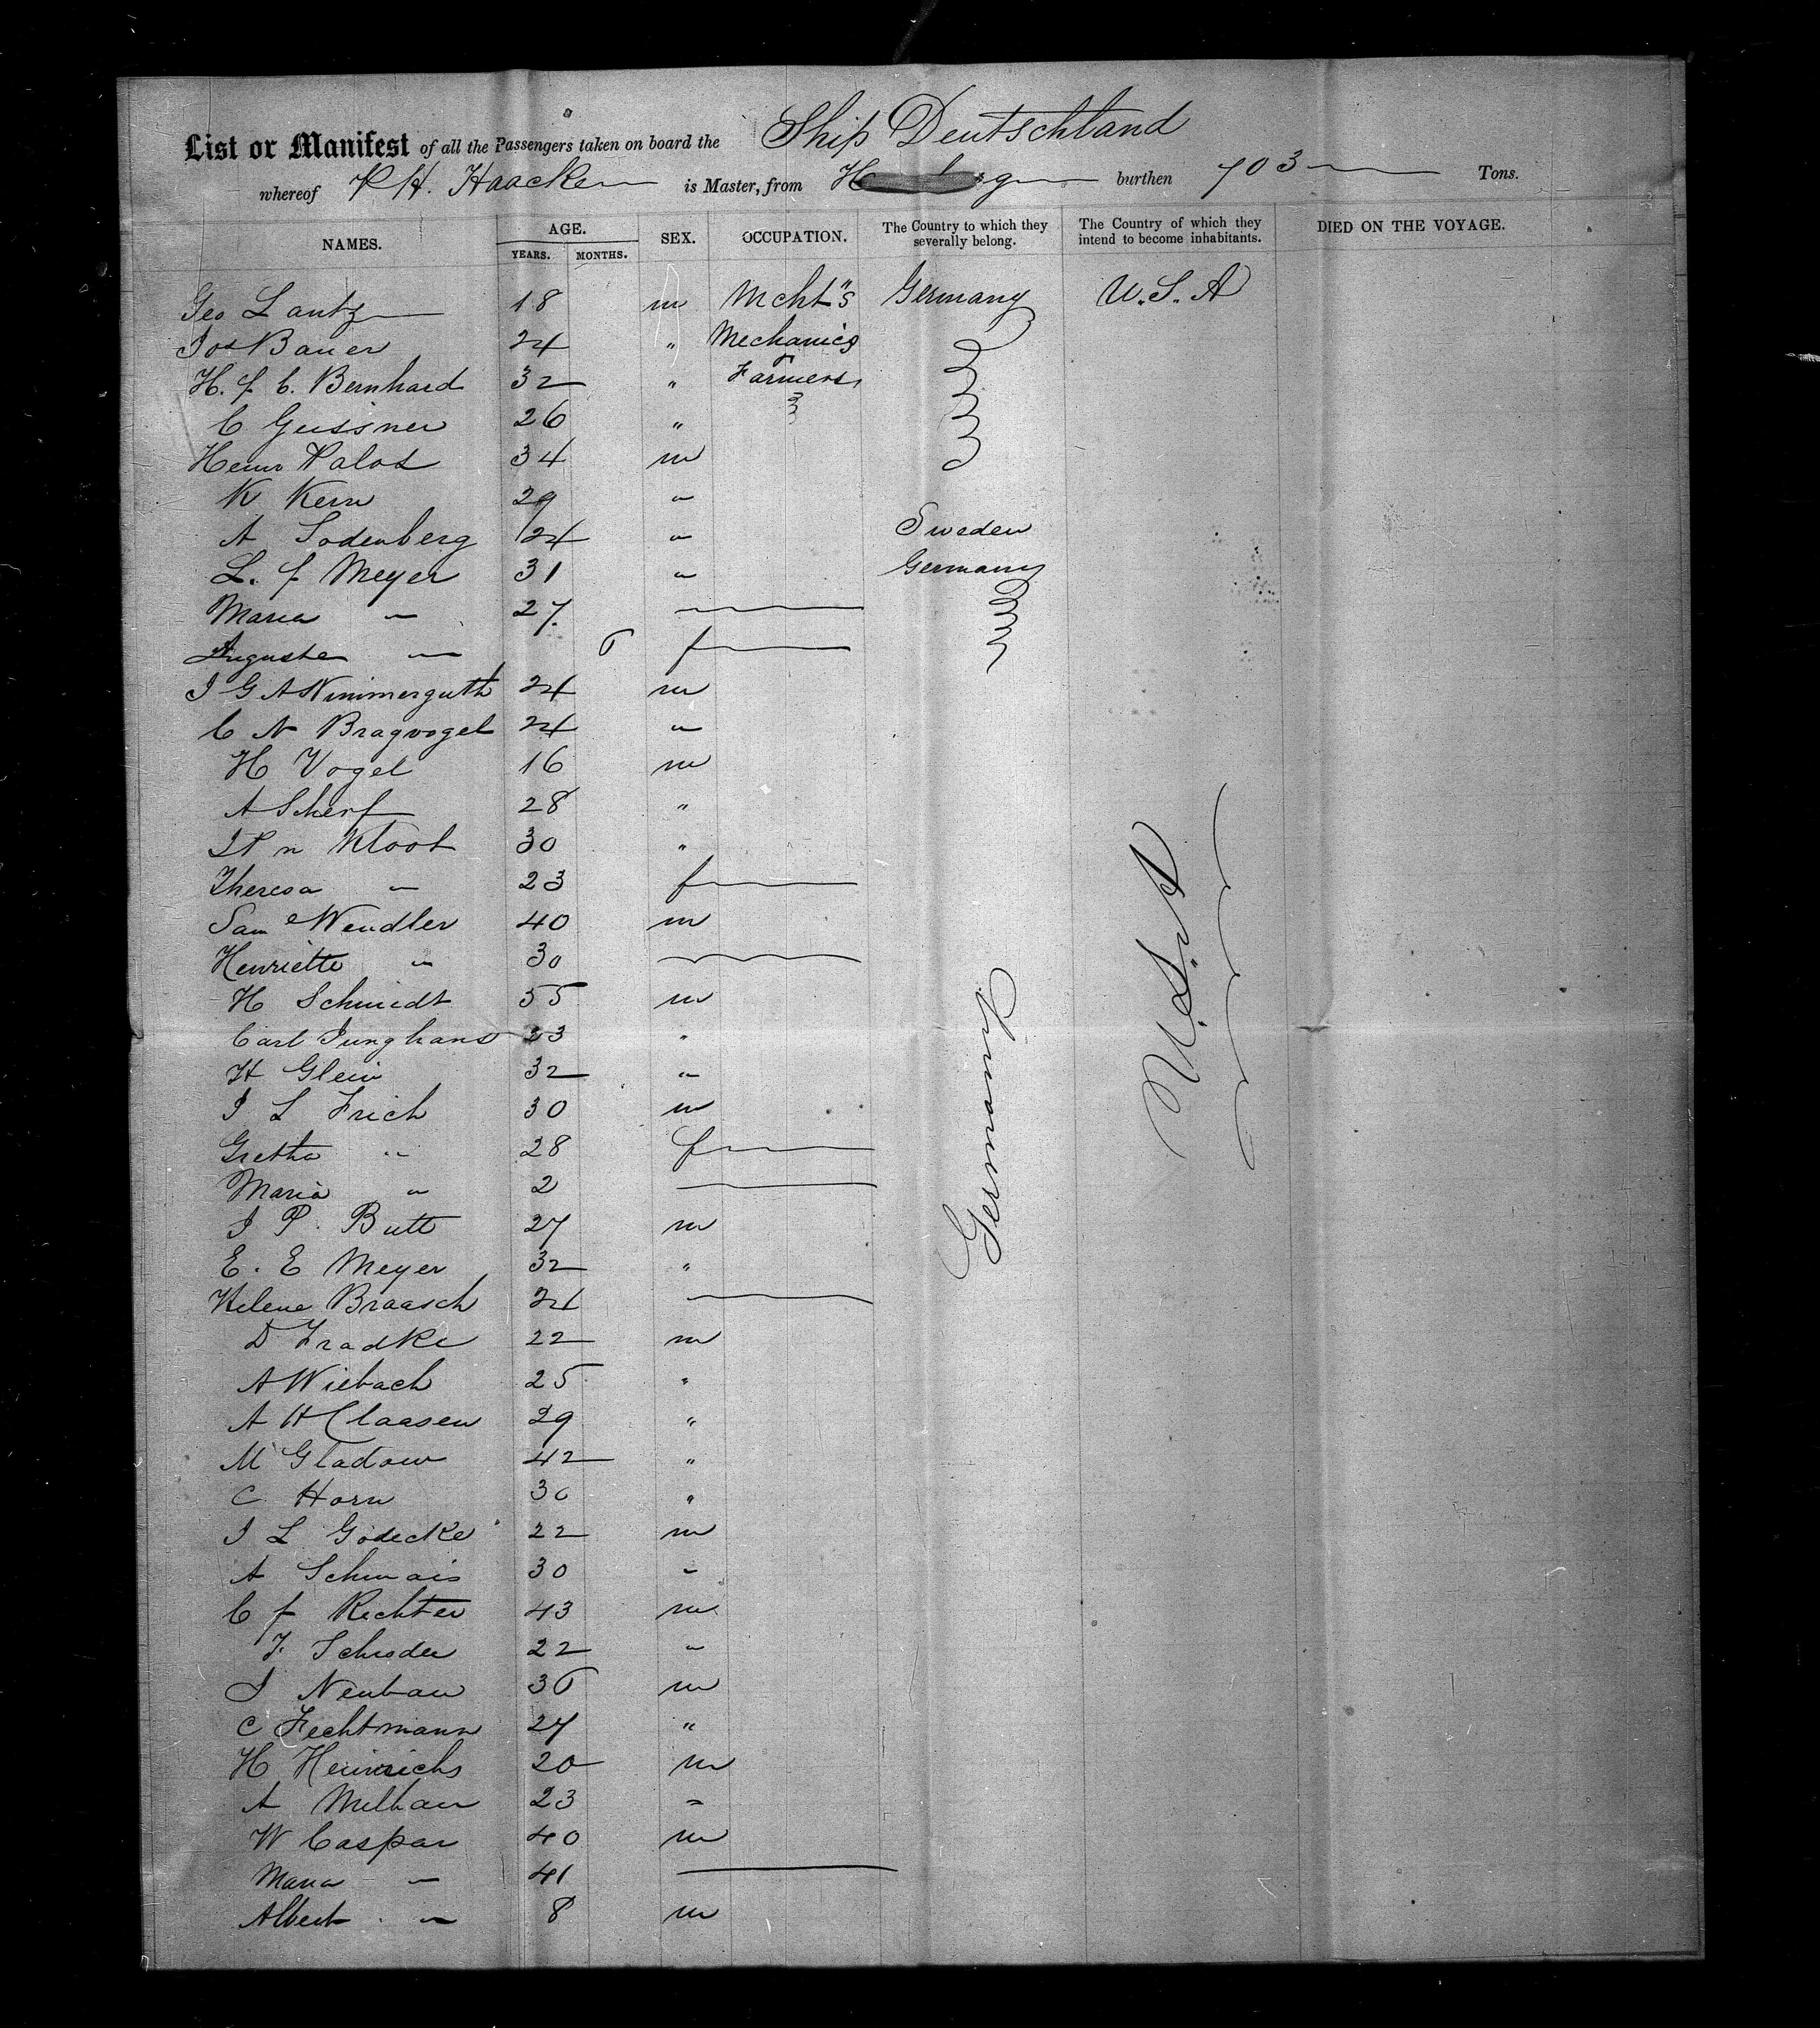 List or Manifest of all the Passengers taken on board the Ship Deutschland
whereof P H. Haacke is Master, from burthen 703 Tons.
NAMES. AGE. YEARS. MONTHS. SEX. OCCUPATION. The Country to which they severally belong. The Country of which they intend to become inhabitants. DIED ON THE VOYAGE.
Geo Lantz 18 m Mcht"s Germany U.S.A
Jos Bauer 24 " Mechanics
H. f C. Bernhard 32 " Farmers
C Geissner 26 "
Heinr 34 m
K Kern 29 "
A Sodenberg 24 " Sweden
L. f Meyer 31 " Germany
Maria " 27
Auguste " 6 f
J G A Nimmerguth 24 m
C N Bragvogel 24 "
H Vogel 16 m
A Scherf 28 "
J P n Kloot 30 "
Theresa " 23 f
Sam Wendler 40 m
Henriette " 30
H Schmidt 55 m
Carl Junghans 23 "
H Glein 32 "
J L Frich 30 m
Gretha " 28 f
Maria " 2
J P. Butt 27 m
E. E Meyer 32 "
Helene Braasch 24
D Fradke 22 m
A Wiebach 25 "
A H Claasen 29 "
M Gladow 42 "
C. Horn 30 "
J L Godecke 22 m
A Schmais 30 "
C f Richter 43 m
F. Schroder 22 "
J Neubau 36 m
C Fechtmann 27 "
H Heinrichs 20 m
A Milhau 23 "
W Caspar 40 m
Maria " 41
Albert " 8 m
Germany
U.S.A